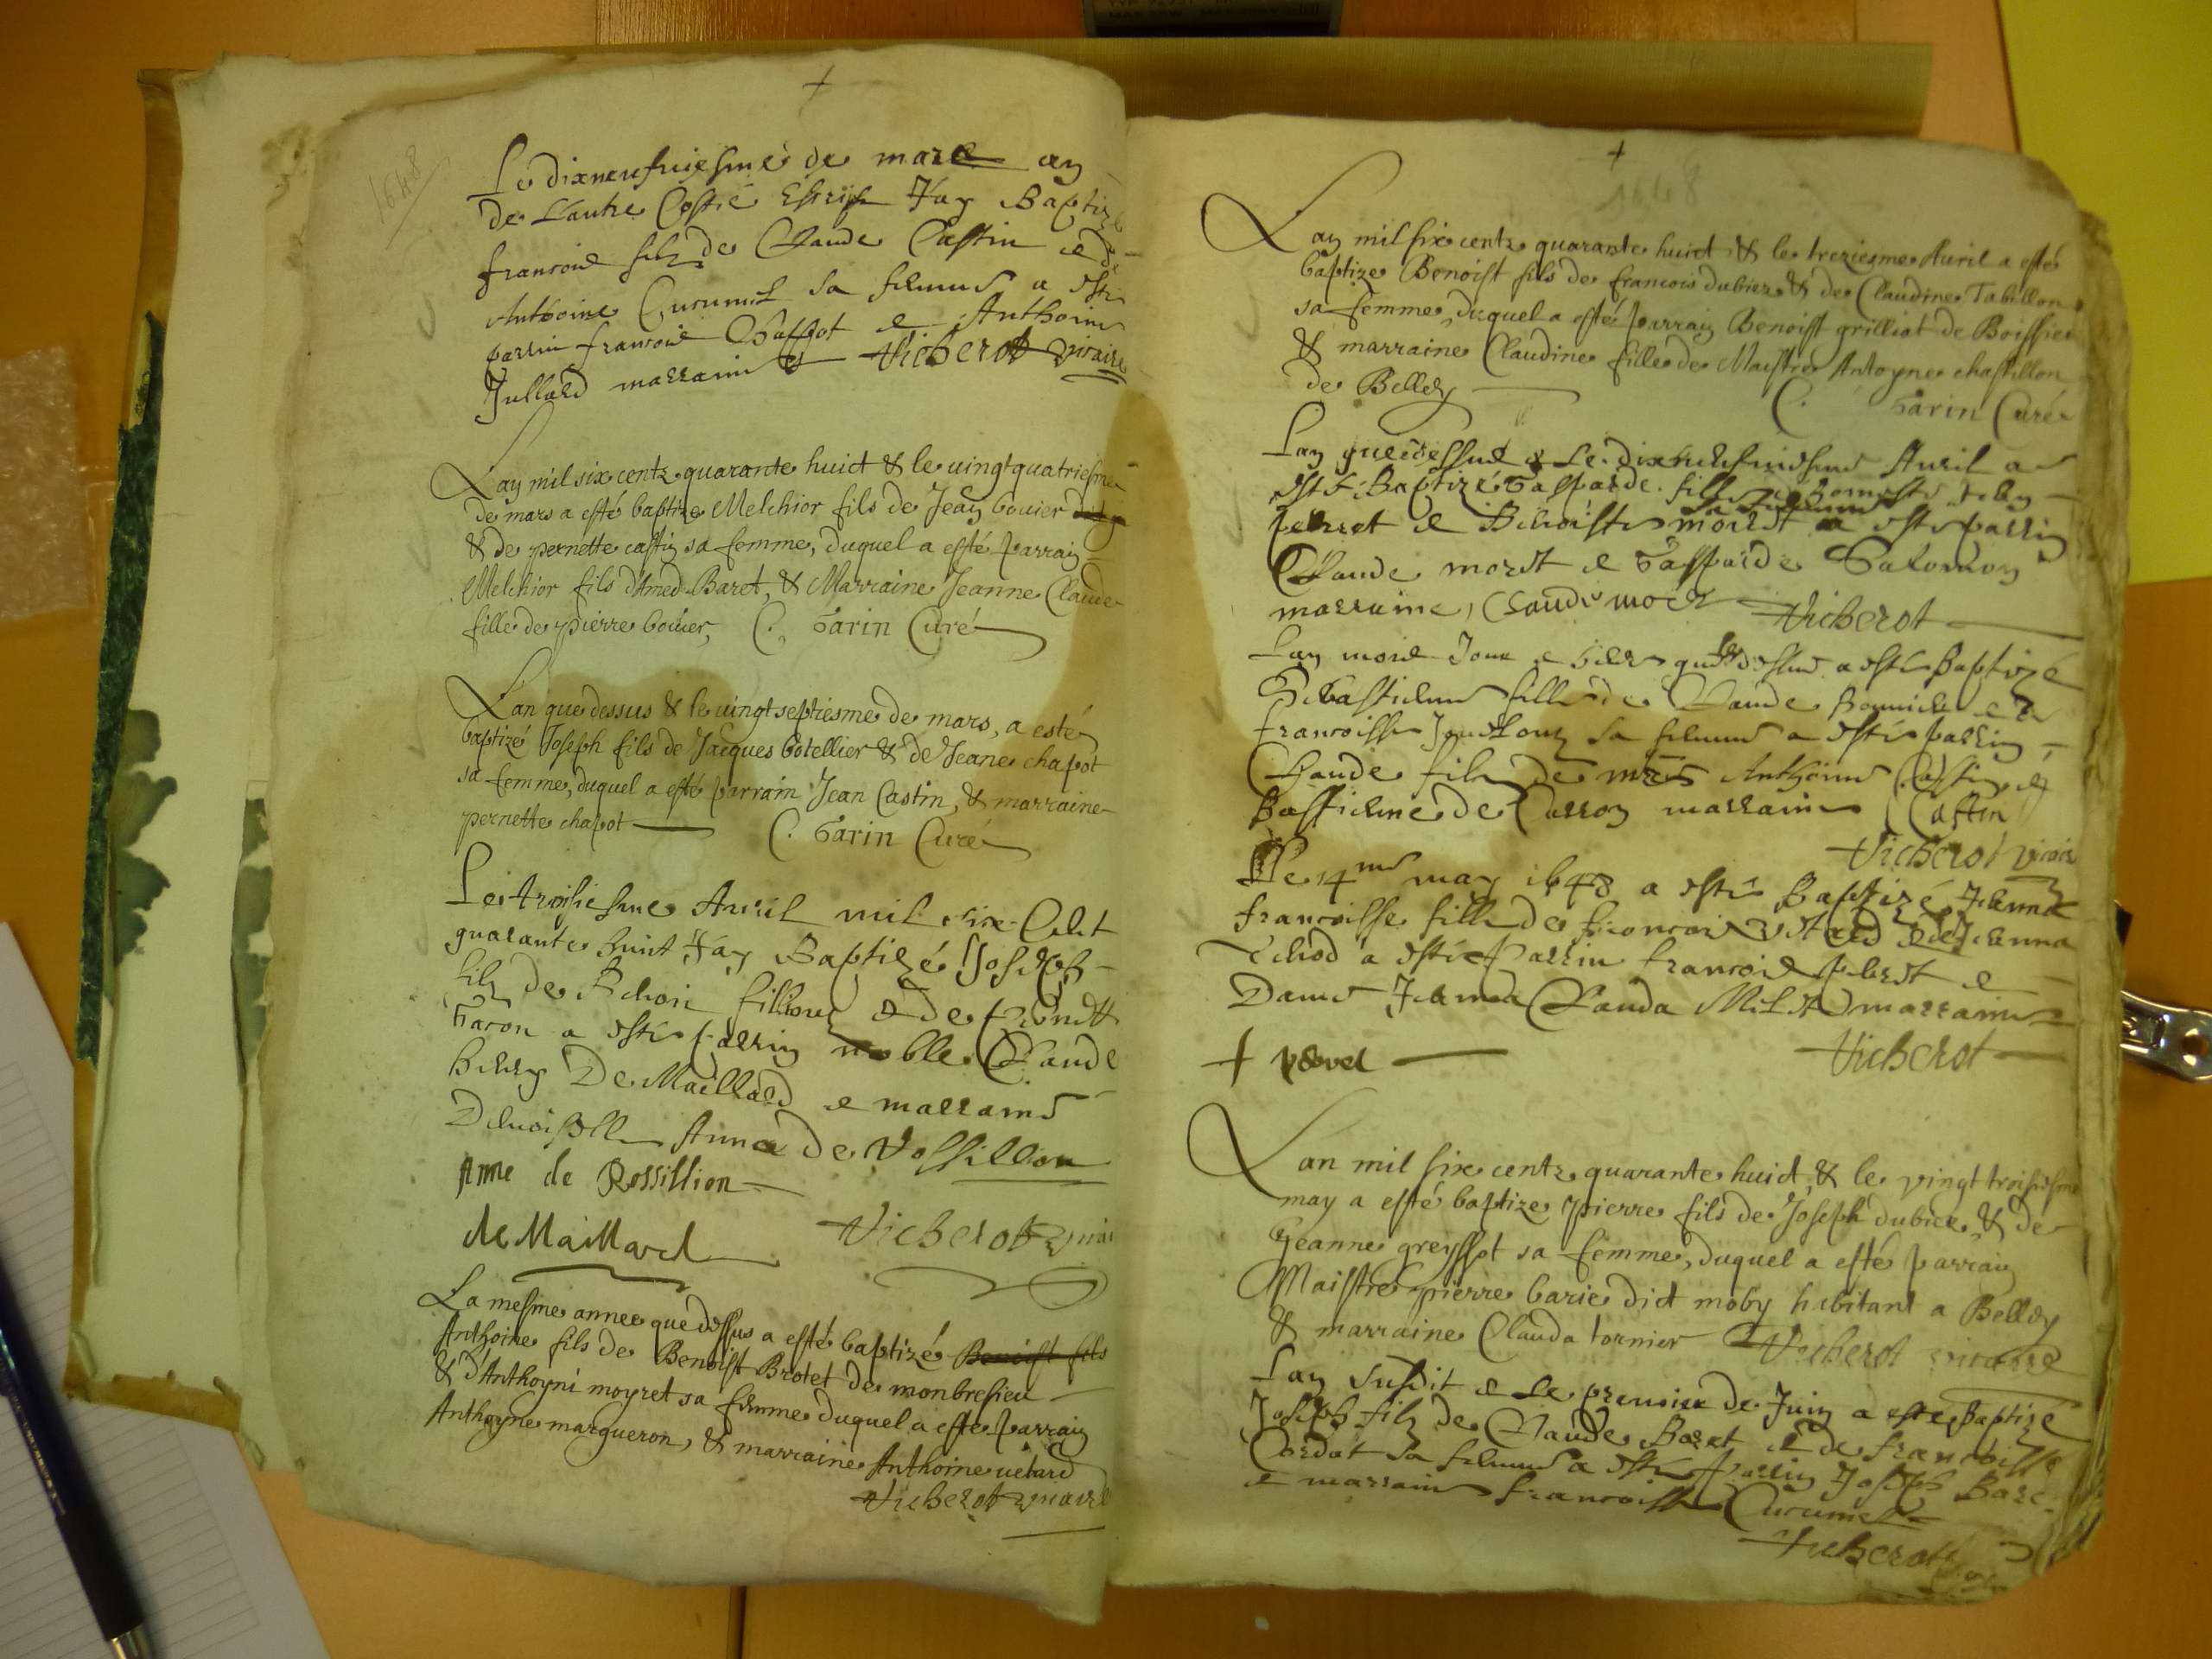 1648
Le dixneufuiesme de mars an
de L'autre Costé Escript J'ay Baptizé
francois filz de Claude Castin et de
Anthoine Curumil sa femme a esté
parrin francois Chappot e Anthoine
Jullard marraine Vicherot vicaire
L'an mil six centz quarante huict & le uingtquatriesme
de mars a esté baptize Melchior fils de Jean bouier
& de pernette castin sa femme, duquel a esté parrain
Melchior fils d'Amed Baret, & Marraine Jeanne Claude
fille de pierre bouier, C. Garin Curé
L'an que dessus & le uingtseptiesme de mars, a esté
baptizé Joseph fils de Jacques botellier & de Jeane chapot
sa femme, duquel a esté parrain Jean Castin, & marraine
pernette chapot C. Garin Curé
Le troisiesme Auril mil six Cent
quarante huict J'ay Baptizé Joseph
filz de fillioux & de
a esté parrin noble Claude
De Maillard e marraine
Demoiselle Anna de Rossillion
Anne de Rossillion
de Maillard Vicherot
La mesme annee que dessus a esté baptizé Benoist fils
Anthoine fils de Benoist Brotet de monbresieu
& d'Anthoyni moyret sa femme duquel a esté parrain
Anthoyne margueron, & marraine Anthoine uetard
Vicherot vicaire
1648
L'an mil six centz quarante huict & le treziesme Auril a esté
baptize Benoist fils de francois dubiez & de Claudine Tabillon
sa femme, duquel a esté parrain Benoist grilliat de Boissieu
& marraine Claudine fille de Maistre Antoyne chastillon
de Belley C. Garin Curé
L'an que dessus & Le dixneufuiesme Auril a
esté Baptizé Gasparde fille de honneste
perret e Benoiste moret a esté parrin
Claude moret e Gasparde Salomon
marraine, Claude moret Vicherot
L'an mois Jour e que dessus a esté Baptizé
Sebastienne fille de Claude Bonnier e de
francoisse sa femme a esté parrin
Claude filz de Anthoine Castin, et
Bastienne de marraine Castin
Vicherot vicaire
Le 14me may 1648 a esté Baptizé Jeanna
francoisse fille de francois vetard e de Jeanna
a esté Parrin francois perret e
Dame Jeanna Clauda Milet marraine
Vicherot
L'an mil six centz quarante huict, & le vingt troisiesme
may a esté baptize pierre fils de Joseph dubiez, & de
Jeanne greyssot sa femme, duquel a esté parrain
Maistre pierre barie dict moby habitant a Belley
& marraine Clauda tornier Vicherot vicaire
L'an susdit e Le premier de Juin a esté Baptizé
Joseph filz de Claude Baret e de francoisse
Cordat sa femme a esté Parrin Joseph Baret
e marraine francoisse Curumil
Vicherot